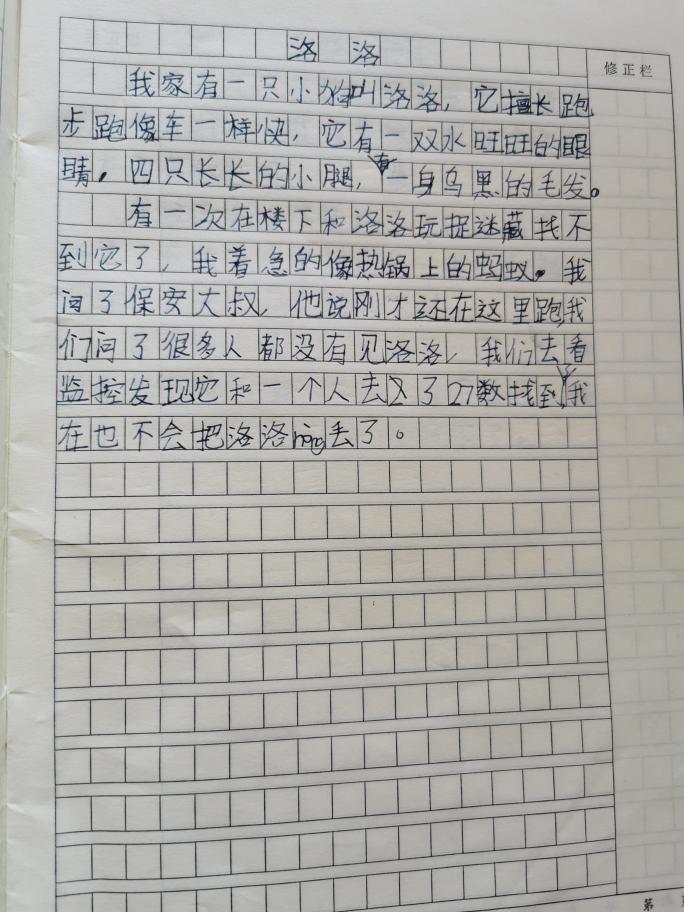 洛洛
修正栏
我家有一只小狗叫洛洛，它擅长跑
步跑像车一样快，它有一双水旺旺的眼
睛，四只长长的小腿，有一身乌黑的毛发。
有一次在楼下和洛洛玩捉迷藏找不
到它了，我着急的像热锅上的蚂蚁。我
问了保安大叔，他说刚才还在这里跑，我
们问了很多人都没有见洛洛，我们去看
监控发现它和一个人去了27数找到了我
在也不会把洛洛nòng丢了。
第